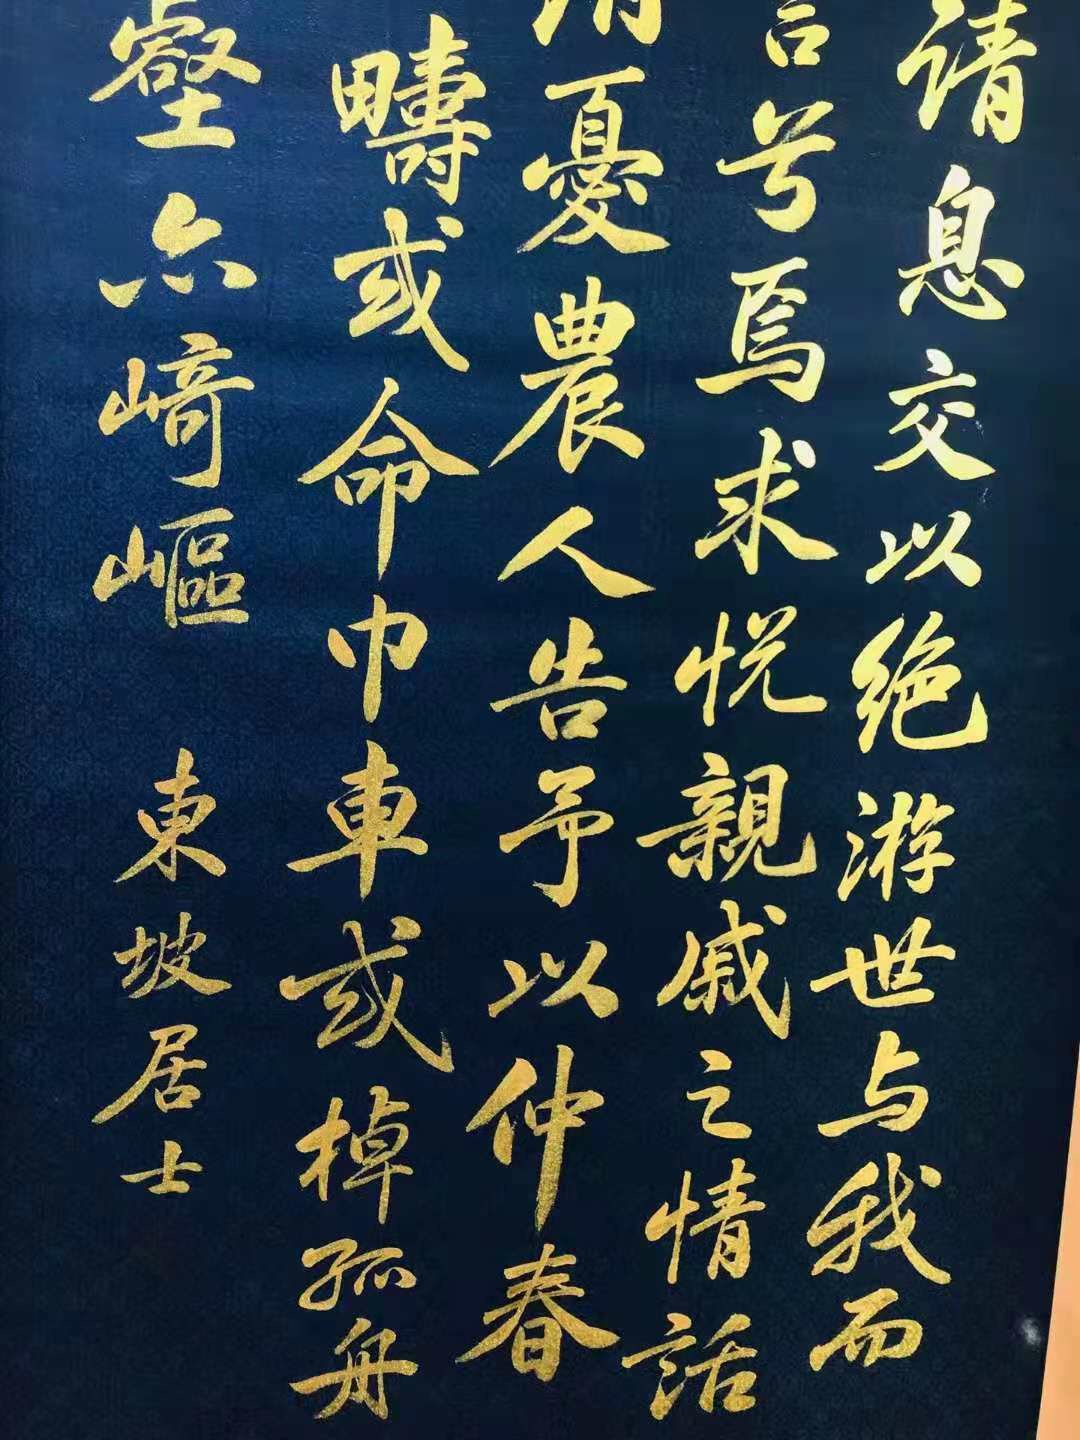 请息交以绝游世与我而
言兮焉求悦親戚之情話
憂農人告予以仲春
疇或命巾車或棹孤舟
壑亦崎嶇
東坡居士